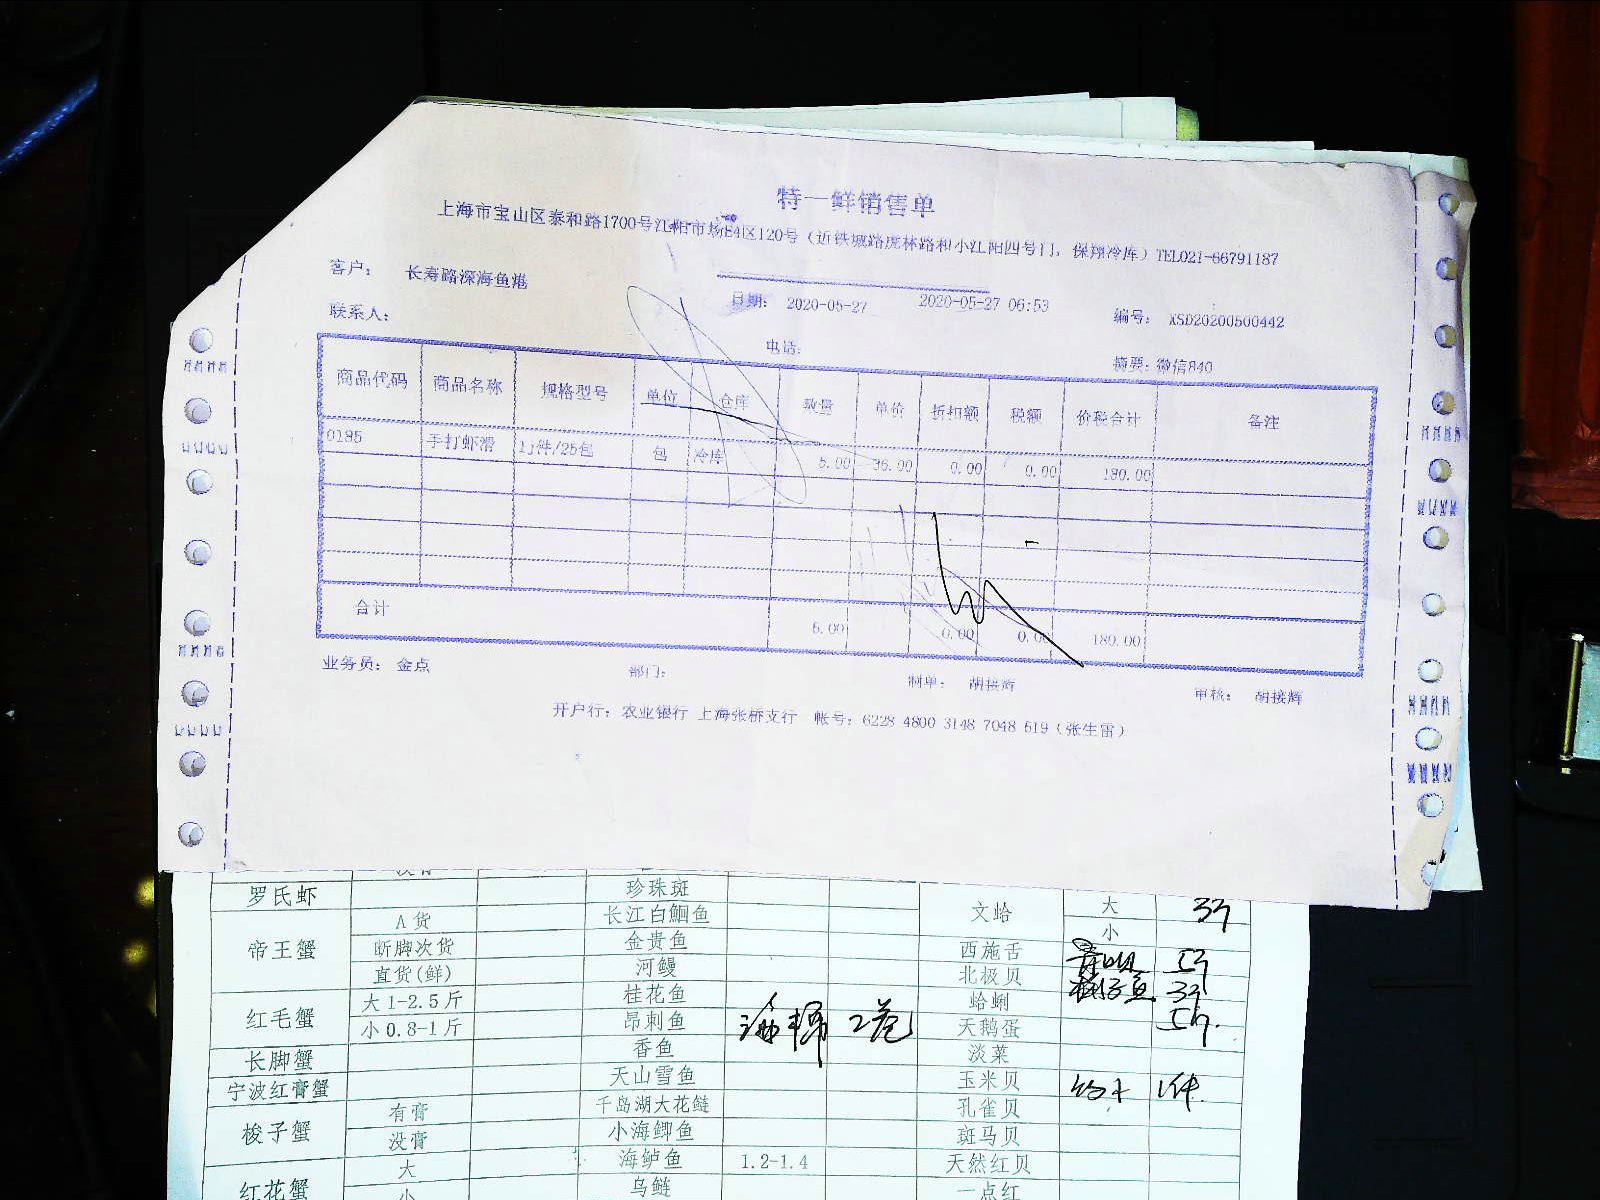 特一鲜销售单
上海市宝山区泰和路1700号江阳市场E4区120号（近铁城路虎林路和小江阳四号门，保翔冷库）TEL021-66791187
客户： 长寿路深海鱼港
日期： 2020-05-27 2020-05-27 06:53 编号： XSD20200500442
联系人： 电话： 摘要：微信840
商品代码 商品名称 规格型号 单位 仓库 数量 单价 折扣额 税额 价税合计 备注
0185 手打虾滑 1*件/25包 包 冷库 5.00 36.00 0.00 0.00 180.00
合计 5.00 0.00 0.00 180.00
业务员： 金点 部门： 制单： 胡接辉 审核： 胡接辉
开户行：农业银行 上海张桥支行 帐号：6228 4800 3148 7048 519（张生雷）
罗氏虾 珍珠斑 文蛤 大
A货 长江白鮰鱼 小
帝王蟹 断脚次货 金贵鱼 西施舌
直货(鲜) 河鳗 北极贝
红毛蟹 大1-2.5斤 桂花鱼 蛤蜊
小0.8-1斤 昂刺鱼 2卷 天鹅蛋
长脚蟹 香鱼 淡菜
宁波红膏蟹 天山雪鱼 玉米贝 1件
梭子蟹 有膏 千岛湖大花鲢 孔雀贝
没膏 小海鲫鱼 斑马贝
红花蟹 大 海鲈鱼 1.2-1.4 天然红贝
小 乌鲢 一点红